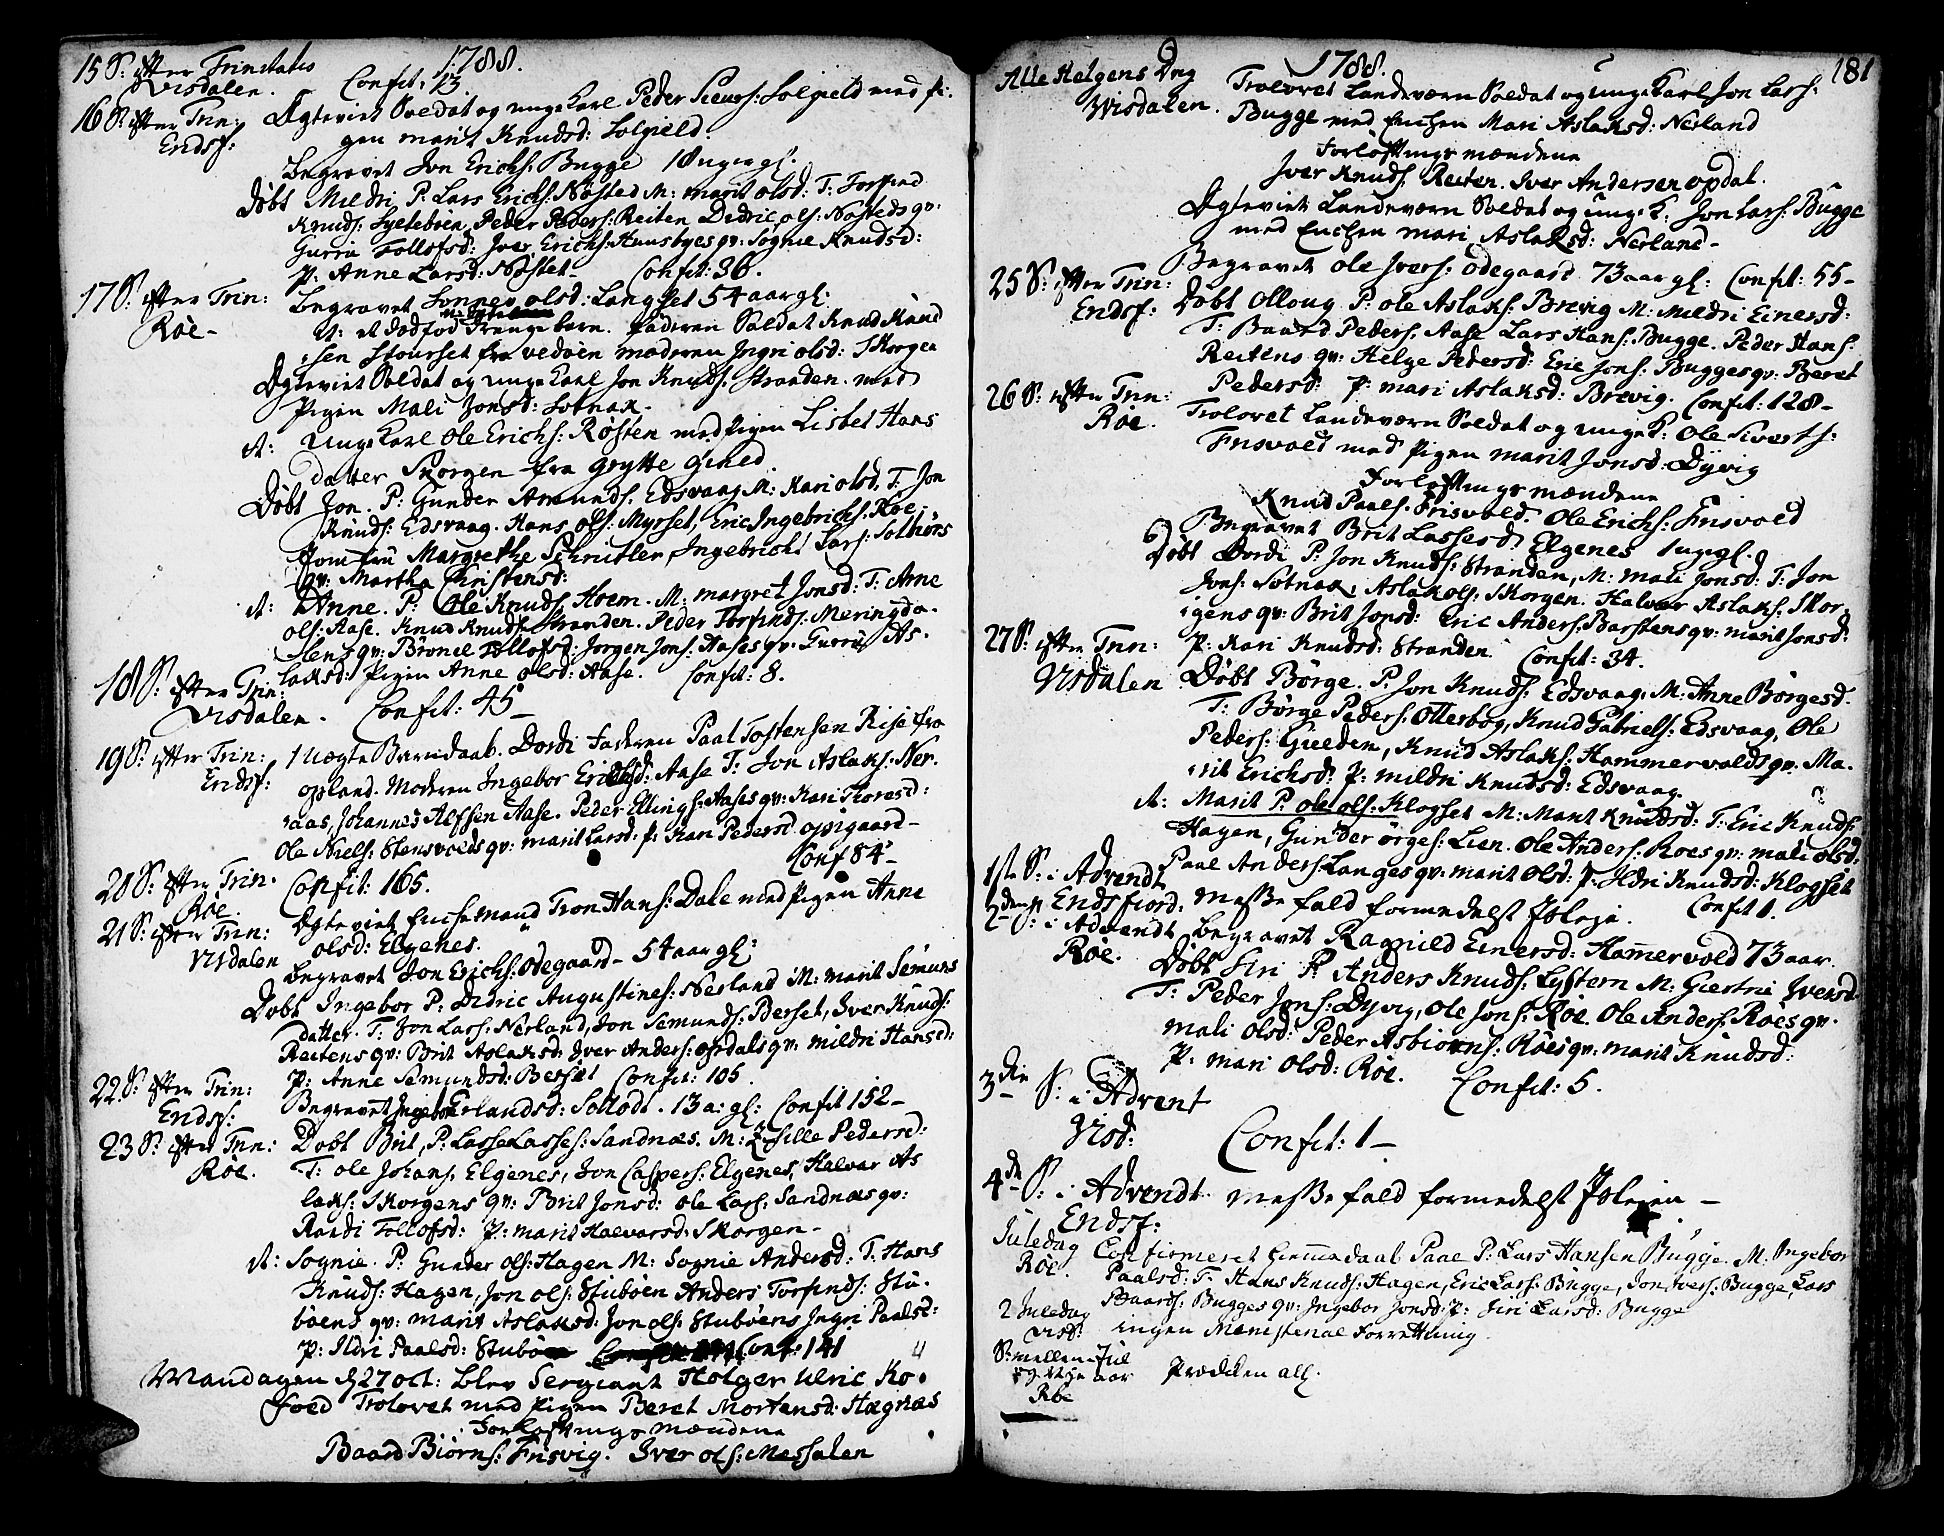 1788.
15 S: efter Trinitatis
Visdalen. Confit: 13.
16 S: efter Trin: Egteviet Soldat og ungekarl Peder Siurs: Solgield med pi-
Eridsf: gen marit Knudsd: Solgield.
Begravet Jon Erichs: Bugge 18 uger gl.
Døbt Mildri P: Lars Erichs: Nøsted M: marit olsd: T: Torfind
Knuds: Syltebøen, Peder Peders: Reiten Didric ols: Nøsteds qv:
Gurru Tollofsd: Iver Erichs: Huusbyes qv: Sognie Knudsd:
P: Anne Larsd: Nøstet. Confit: 36.
17 S: efter Trin: Begravet Sonnev olsd: Langset 54 aar gl:
Røe - it: et dødfød Drenge barn. faderen Soldat Knud Knud
sen Stourset fra vedøen moderen Ingri olsd: Skorgen
Egteviet Soldat og ungekarl Jon Knuds: Stranden med
Pigen Mali Jonsd: Sotnak-
it: Ungekarl Ole Erichs: Røsten med Pigen Lisbet Hans
datter Skorgen fra Grytte Gield
Døbt Jon. P: Gunder Amunds: Edsvaag M: Kari olsd. T: Jon
Knuds: Edsvaag. Hans ols: Myrset, Eric Ingebrichs: Røe,
Jomfru Margrethe Schnitler, Ingebricht Lars: Solhørs
qv: Martha Christensd:
it: Anne. P: Ole Knuds: Hoem. M: margret Jonsd: T: Arne
ols: Aase. Knud Knuds: Stranden. Peder Torfinds: Meringda-
lens qv: Brønel Tollofsd: Jørgen Jons: Aases qv: Gurru As-
laksd: Pigen Anne olsd: Aase. Confit: 8.
18 S: efter Trin:
Visdalen. Confit: 45-
19 S: efter Trin: 1 uægte Barn daab. Dordi Faderen Paal Tostensen Rise fra
Eridsf: opland. Moderen Ingebor Erichsd: Aase T: Jon Aslaks: Ner-
aas, Johannes Alfsen Aase. Peder Ellings: Aases qv: Kari Thoresd:
Ole Niels: Stensvolds qv: marit Larsd: P: Kari Pedersd opigaard-
Conf 84-
20 S: efter Trin. Confit: 165.
Røe.
21 S: efter Trin: Egteviet Enchemand Tron Hans: Dale med Pigen Anne
Visdalen olsd: Elgenes.
Begravet Jon Erichs: Ødegaard - 54 aar gl:
Døbt Ingebor P: Didric Augustines: Nerland M: marit Semunds
datter. T: Jon Lars: Nerland, Jon Semunds: Berset, Iver Knuds:
Reitens qv: Brit Aslaksd: Iver Anders: opdals qv: mildri Hansd:
P: Anne Semundsd: Berset Confit: 105.
22 S: efter Trin: Begravet Ingebor Erlandsd: Soltodt. 13 a: gl: Confit 152-
Eridsf:
23 S: efter Trin: Døbt Brit, P: Lasse Lasses: Sandnæs. M: Zidsille Pedersd:
Røe. T: ole Johans: Elgenes, Jon Caspers: Elgenes, Halvar As
laks: Skorgens qv: Brit Jonsd: ole Lars: Sandnæs qv:
Randi Tollofsd: P: marit Halvarsd: Skorgen-
it: Sognie. P: Gunder ols: Hagen M: Sognie Andersd: T: Hans
Knuds: Hagen, Jon ols: Stubøen Anders Torfinds: Stu-
bøens qv: marit Aslaksd: Jon ols: Stubøens Ingri Paalsd:
P: Ildri Paalsd: Stubøen Conf: 141
Mandagen d 27 oct: blev Sergiant Holger Ulric Ko-
foed Trolovet med Pigen Beret Mortensd: Hægnæs
Forloftnings mændene
Baard Biørns: Frisvig. Iver ols: Messalen
1788. 181
Alle Helgens Dag Trolovet Landeværn Soldat og ungekarl Jon Lars:
Visdalen. Bugge med Enchen Mari Aslaksd: Nerland
Forloftnings mændene
Iver Knuds: Reiten. Iver Andersen opdal.
Egteviet Landeværn Soldat og unge K: Jon Lars: Bugge
med Enchen mari Aslaksd: Nerland-
Begravet ole Ivers: Ødegaard 73 aar gl: Confit: 55-
25 S: efter Trin: Døbt Olloug P: ole Aslaks: Brevig M: Mildri Einersd:
Eridsf: T: Baard Peders: Aase Lars Hans: Bugge. Peder Hans:
Reitens qv: Helge Pedersd: Eric Jons: Bugges qv: Beret
Pedersd: P: mari Aslaksd: Brevig. Confit: 128-
26 S: efter Trin: Trolovet Landeværn Soldat og unge K: Ole Siverts:
Røe. Frisvold med Pigen marit Jonsd: Dyvig
Forloftnings mændene
Knud Paals: Frisvold. Ole Erichs: Frisvold
Begravet Brit Lassesd: Elgenes 1 uge gl.
Døbt Dordi P: Jon Knuds: Stranden, M: mali Jonsd: T: Jon
Jons: Sotnak, Aslak ols: Skorgen. Halvar Aslaks: Skor-
gens qv: Brit Jonsd: Eric Anders: Barstens qv: marit Jonsd:
P: Kari Knudsd: Stranden. Confit: 34.
27 S: efter Trin: Døbt Børge. P: Jon Knuds: Edsvaag, M: Anne Børgesd.
Visdalen T: Børge Peders: Otterbog, Knud Gabriels: Edsvaag, Ole
Peders: Gulden, Knud Aslaks: Hammervolds qv. Ma-
rit Erichsd: P: mildri Knudsd: Edsvaag.
it: Marit P: ole ols: Klogset M: Marit Knudsd: T: Eric Knuds:
Hagen, Gunder ørges: Lien. Ole Anders: Røes qv: mali olsd:
Paal Anders: Langes qv: marit Olsd: P: Ildri Knudsd: Klogset
1ste S: i Advendt
Eridsfiord. Messe fald formedelst Isleje. Confit 1.
2den S: i Advendt Begravet Ragnild Einersd: Hammervold 73 aar.
Røe. Døbt Siri P: Anders Knuds: Lystern M: Giertrü Iversd:
T: Peder Jons: Dyvig, Ole Jons: Røe. Ole Anders: Røes qv.
mali Olsd: Peder Asbiørns: Røes qv: marit Knudsd:
P: mari Olsd: Røe. Confit: 5.
3die S: i Advent
Visd: Confit: 1-
4de S: i Advendt. messe fald formedelst Islejen -
Eridsf:
Juledag Confirmeret hiemmedaab Paal P: Lars Hansen Bugge. M. Ingebor
Røe. Paalsd: T. Hans Knuds: Hagen, Eric Lars: Bugge, Jon Ivers: Bugge, Lars
Baards: Bugges qv: Ingebor Jonsd: P: Siri Larsd: Bugge
2 Juledag
Visd: ingen Ministerial Forretning.
S: mellem Jul
og Nyt aar Prædiken all.
Røe